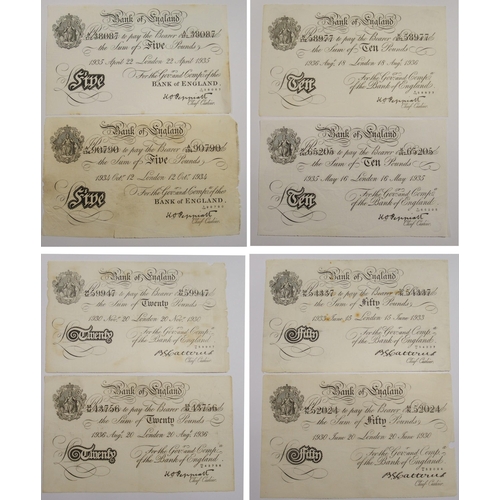 Bank of England
38087 to pay the Bearer 38087
the Sum of Five Pounds
1935 April 22 London 22 April 1935
For the Gov.r and Comp.a of the
BANK OF ENGLAND.
Five
K O Peppiatt
Chief Cashier
Bank of England
90790 to pay the Bearer 90790
the Sum of Five Pounds
1934 Oct. 12 London 12 Oct. 1934
For the Gov.r and Comp.a of the
BANK OF ENGLAND.
Five
K O Peppiatt
Chief Cashier
Bank of England
38977 to pay the Bearer 38977
the Sum of Ten Pounds
1936 Aug. 18 London 18 Aug. 1936
For the Gov.r and Comp.a
of the Bank of England.
Ten
K O Peppiatt
Chief Cashier
Bank of England
65205 to pay the Bearer 65205
the Sum of Ten Pounds
1935 May 16 London 16 May 1935
For the Gov.r and Comp.a
of the Bank of England.
Ten
K O Peppiatt
Chief Cashier
Bank of England
59947 to pay the Bearer 59947
the Sum of Twenty Pounds
1930 Nov. 20 London 20 Nov. 1930
For the Gov.r and Comp.a
of the Bank of England.
Twenty
B G Catterns
Chief Cashier
Bank of England
43756 to pay the Bearer 43756
the Sum of Twenty Pounds
1936 Aug. 20 London 20 Aug. 1936
For the Gov.r and Comp.a
of the Bank of England.
Twenty
K O Peppiatt
Chief Cashier
Bank of England
54337 to pay the Bearer 54337
the Sum of Fifty Pounds
1933 June 15 London 15 June 1933
For the Gov.r and Comp.a
of the Bank of England.
Fifty
B G Catterns
Chief Cashier
Bank of England
52024 to pay the Bearer 52024
the Sum of Fifty Pounds
1930 June 20 London 20 June 1930
For the Gov.r and Comp.a
of the Bank of England.
Fifty
B G Catterns
Chief Cashier